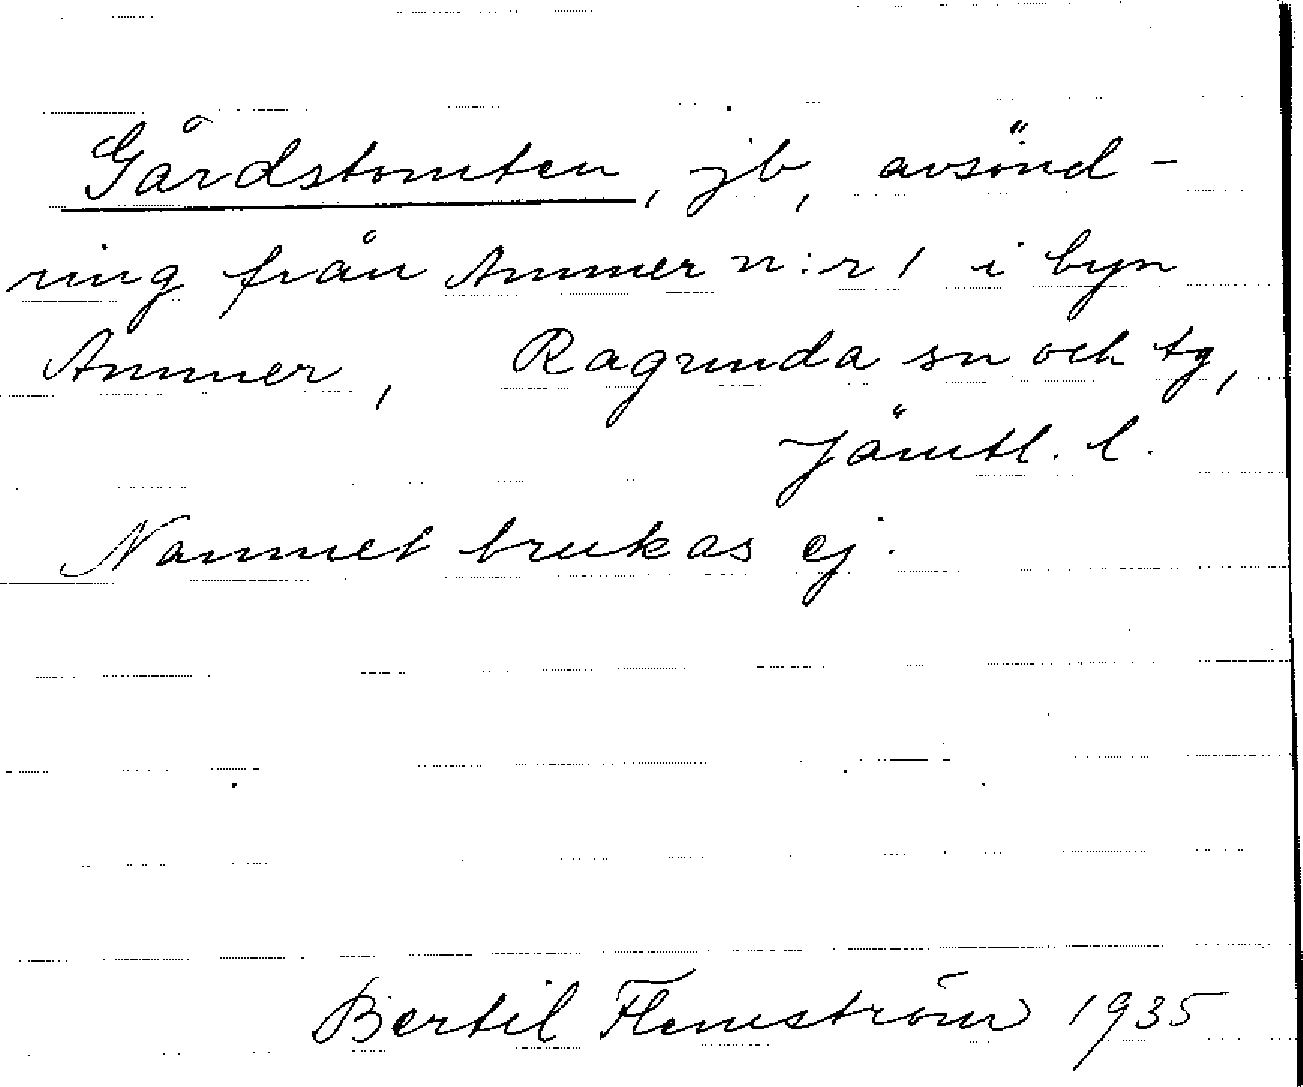 Gårdstomten, jb, avsönd-
ring från Ammer n:r 1 i byn
Ammer, Ragunda sn och tg,
Jämtl. l.
Namnet brukas ej.
Bertil Flemström 1935